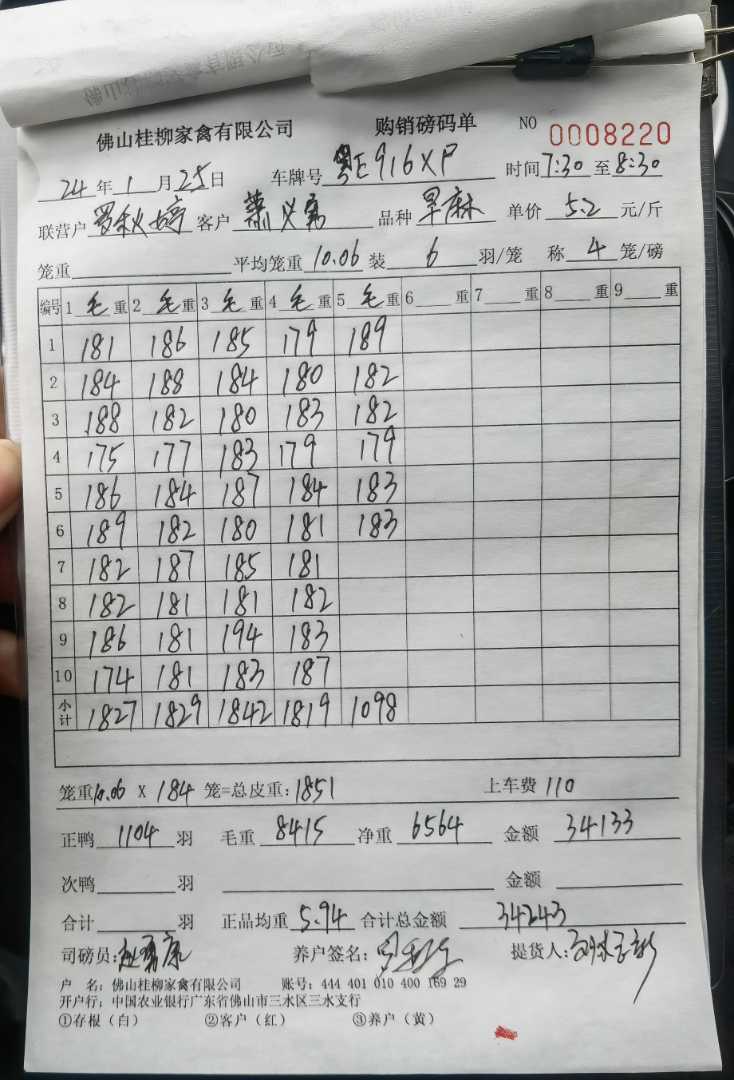 佛山桂柳家禽有限公司 购销磅码单 NO 0008220
24年1月25日 车牌号 粤E916XP 时间7:30至8:30
联营户 罗秋婷 客户 萧 品种 旱麻 单价 5.2 元/斤
笼重 平均笼重 10.06 装 6 羽/笼 称 4 笼/磅
编号 1 毛 重 2 毛 重 3 毛 重 4 毛 重 5 毛 重 6 重 7 重 8 重 9 重
1 181 186 185 179 189
2 184 188 184 180 182
3 188 182 180 183 182
4 175 177 183 179 179
5 186 184 187 184 183
6 189 182 180 181 183
7 182 187 185 181
8 182 181 181 182
9 186 181 194 183
10 174 181 183 187
小计 1827 1829 1842 1819 1098
笼重10.06 X 184 笼=总皮重:1851 上车费 110
正鸭 1104 羽 毛重 8415 净重 6564 金额 34133
次鸭 羽 金额
合计 羽 正品均重 5.94 合计总金额 34243
司磅员: 养户签名: 提货人:
户 名: 佛山桂柳家禽有限公司 账号: 444 401 010 400 169 29
开户行: 中国农业银行广东省佛山市三水区三水支行
①存根(白) ②客户(红) ③养户(黄)